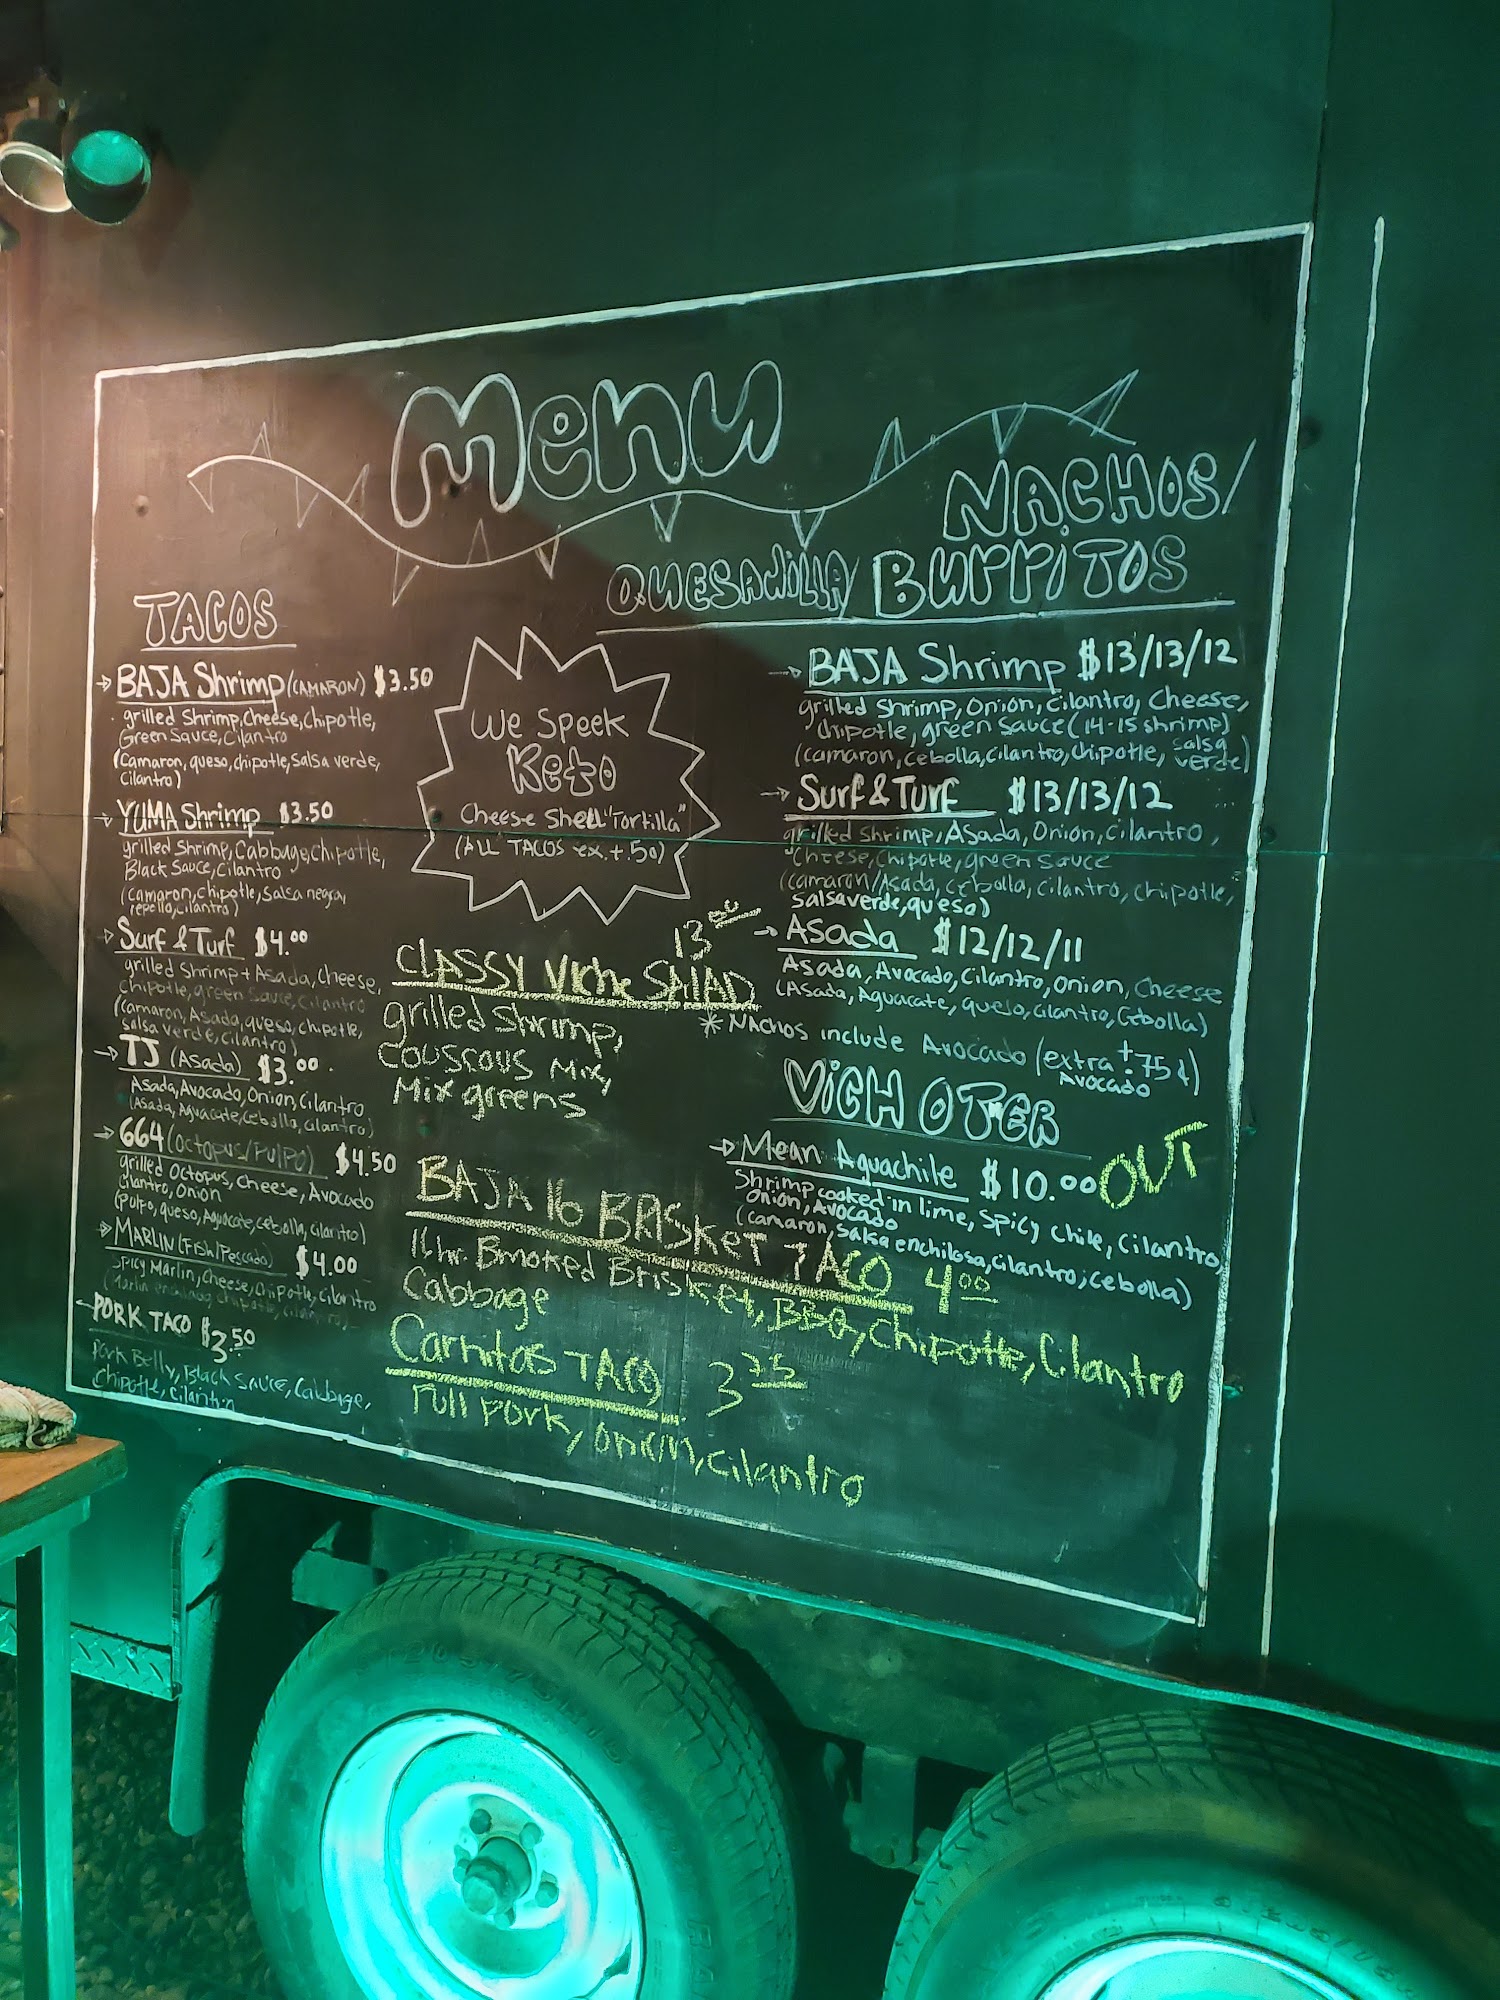 Menu
NACHOS/
QUESADILLA/ BURRITOS
TACOS
BAJA Shrimp (CAMARON) $3.50
grilled Shrimp, Cheese, Chipotle,
Green Sauce, Cilantro
(Camaron, queso, chipotle, Salsa verde,
Cilantro)
YUMA Shrimp $3.50
grilled Shrimp, Cabbage, Chipotle,
Black Sauce, Cilantro
(camaron, chipotle, Salsa negra,
repello, cilantro)
Surf & Turf $4.00
grilled Shrimp + Asada, Cheese,
Chipotle, green Sauce, Cilantro
(camaron, Asada, queso, chipotle,
Salsa verde, cilantro)
TJ (Asada) $3.00
Asada, Avocado, Onion, Cilantro
(Asada, Aguacate, Cebolla, Cilantro)
664 (Octopus/Pulpo) $4.50
grilled Octopus, Cheese, Avocado
Cilantro, Onion
(Pulpo, queso, Aguacate, cebolla, cilantro)
MARLIN (Fish/Pescado) $4.00
Spicy Marlin, Cheese, Chipotle, cilantro
PORK TACO $3.50
Pork Belly, Black Sauce, Cabbage,
Chipotle, Cilantro
We Speek
Keto
Cheese Shell "Tortilla"
(ALL TACOS ex. +.50)
CLASSY Viche SALAD 13.00
grilled Shrimp,
Couscous Mix,
Mix greens
BAJA 16 BRISKET TACO 4.00
16hr. Smoked Brisket, BBQ, Chipotle, Cilantro
Cabbage
Carnitas TACO 3.75
Pull pork, onion, cilantro
BAJA Shrimp $13/13/12
grilled Shrimp, Onion, Cilantro, Cheese,
chipotle, green Sauce (14-15 shrimp)
(camaron, cebolla, cilantro, chipotle, salsa
verde)
Surf & Turf $13/13/12
grilled Shrimp, Asada, Onion, Cilantro,
Cheese, Chipotle, green Sauce
(camaron/Asada, cebolla, cilantro, chipotle,
salsa verde, queso)
Asada $12/12/11
Asada, Avocado, Cilantro, Onion, Cheese
(Asada, Aguacate, queso, cilantro, Cebolla)
*NACHOS include Avocado (extra + .75¢)
Avocado
VICH OTER
Mean Aguachile $10.00 OUT
Shrimp cooked in lime, Spicy Chile, Cilantro,
Onion, Avocado
(camaron, Salsa enchilosa, cilantro, cebolla)